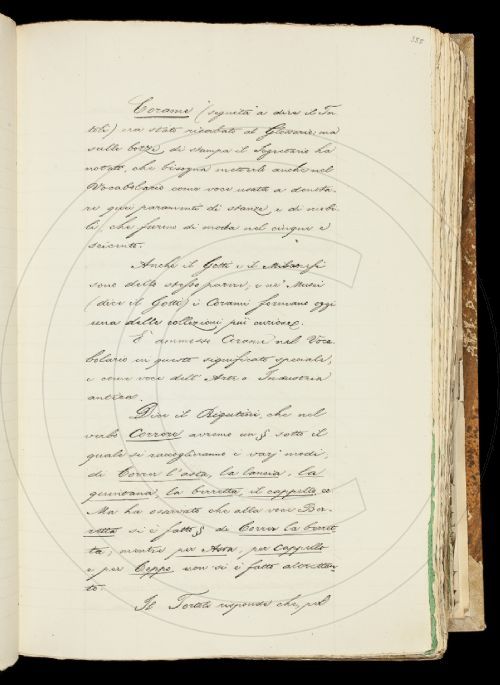 Corame (seguita a dire il Tor
teli) era stato ricubato al Glossario; ma
sulle bozze di stampa il Segretario ha
notato, che bisogna metterlo anche nel
Vocabolario come voce usata a denota-
re quei paramenti di stanze e di mobi-
li, che furono di moda nel cinque e
seicento.
Anche il Gotti e il Milanesi
sono dello stesso parere, e ne' Musei
(dice il Gotti) i Corami formano oggi
una delle collezioni più curiose.
È ammesso Corame nel Voca-
bolario in questo significato speciale,
e come voce dell'Arte o Industria
antica.
Dice il Rigutini, che nel
verbo Correre avremo un § sotto il
quale si raccoglieranno i varj modi,
di Correr l'asta, la lancia, la
quintana, la berretta, il cappello ec
Ma ha osservato che alla voce Ber-
retta si è fatto § di Correr la berret-
ta, mentre per Asta, per Cappello
e per Ceppo non si è fatto altrettan-
to.
Il Tortoli risponde che, pel